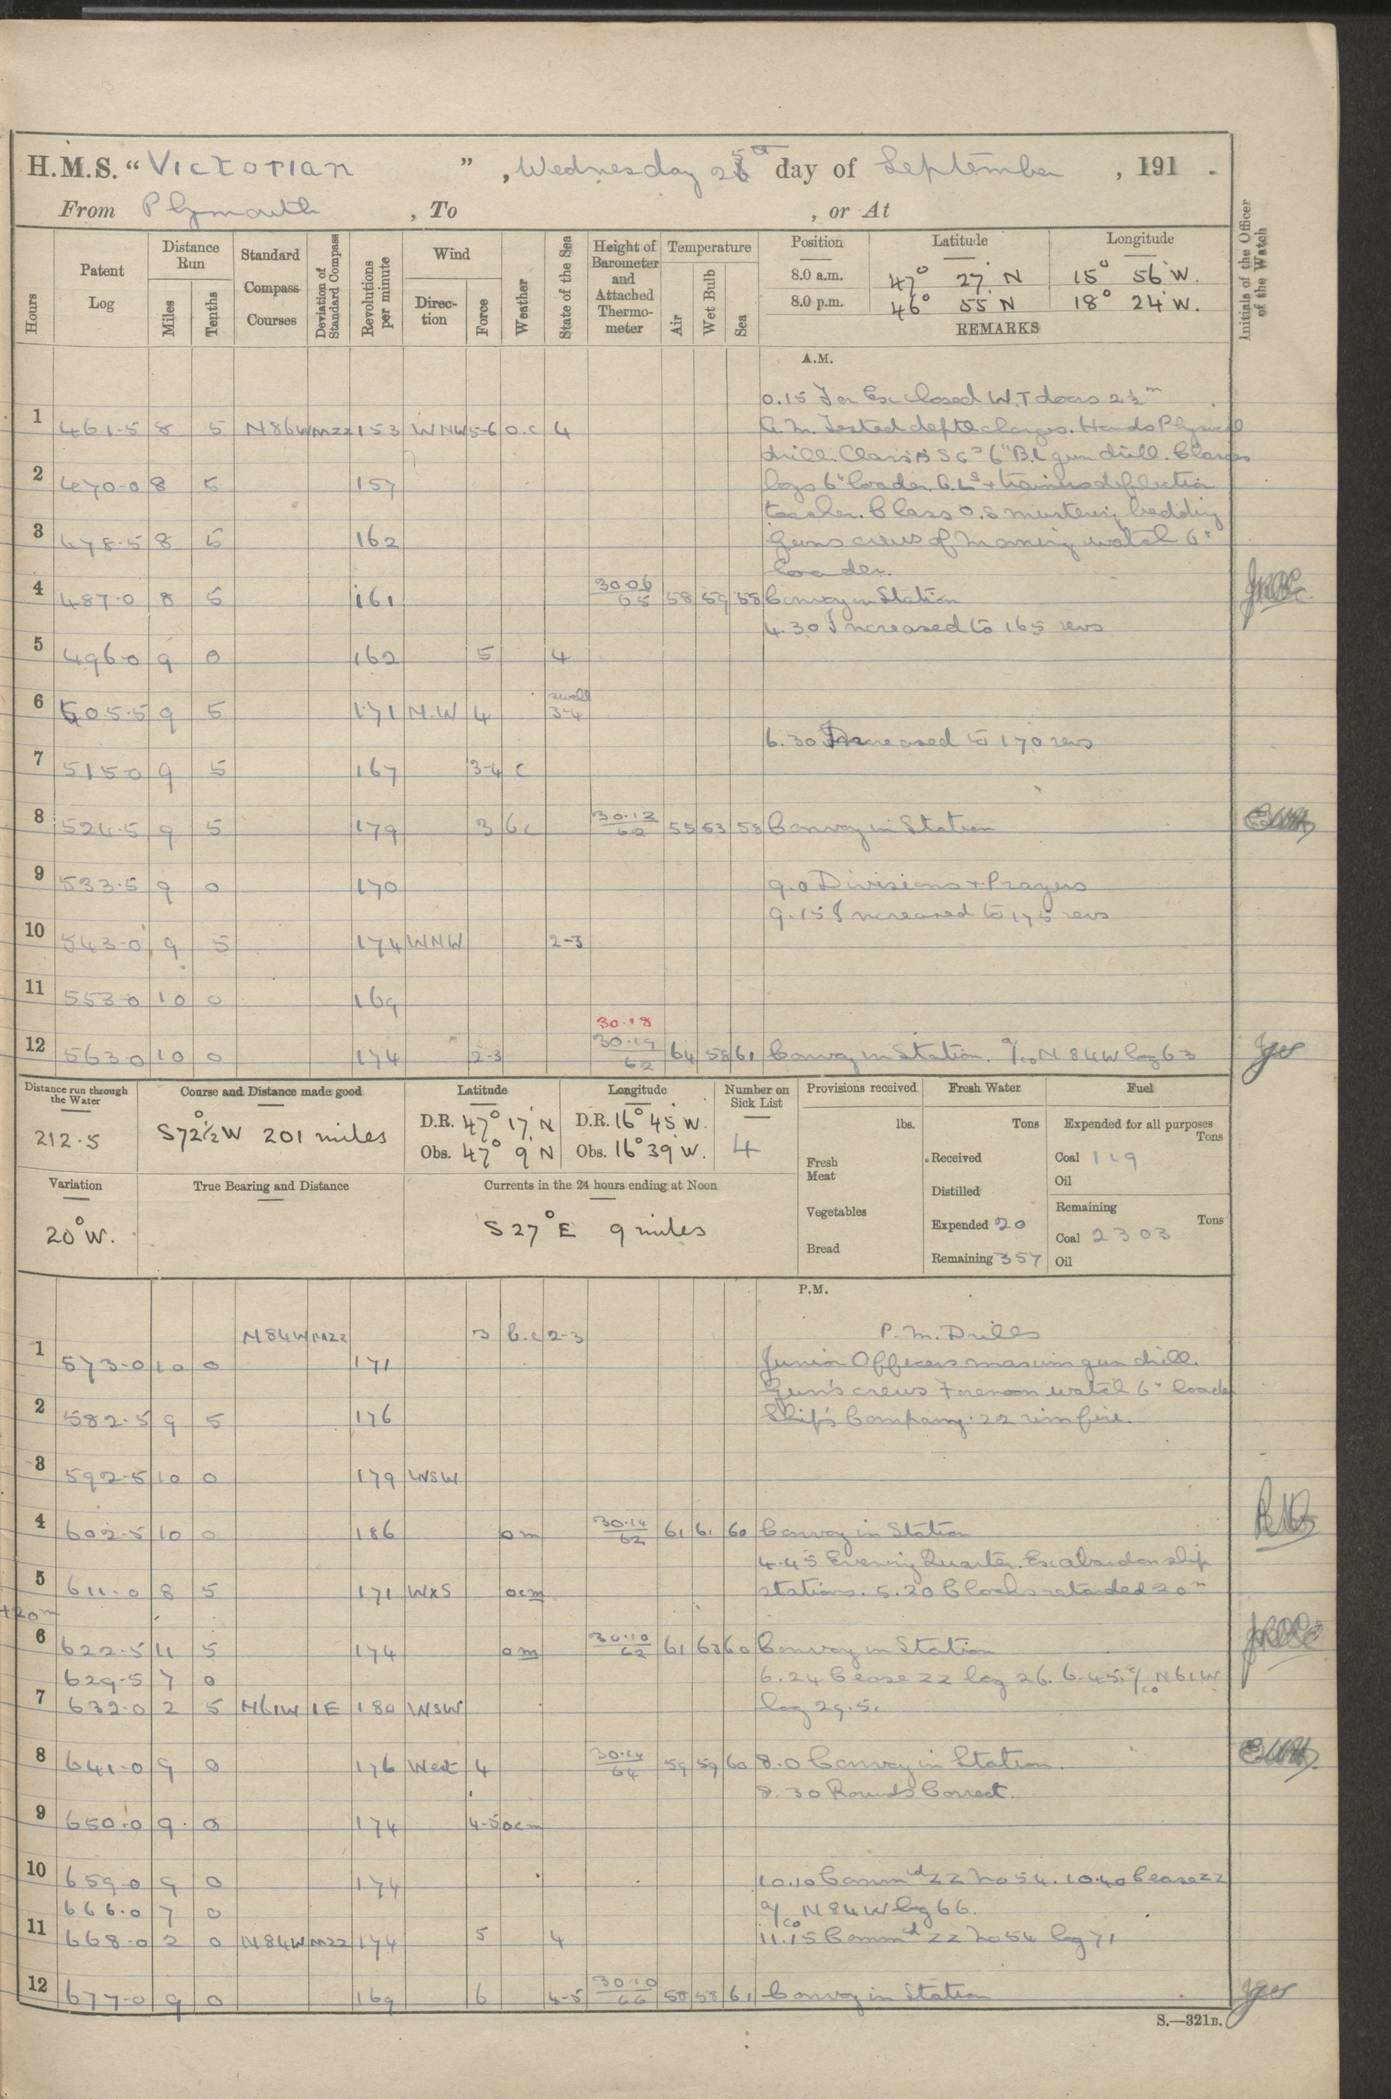 H.M.S. "Victorian", Wednesday 25th day of September, 191 .
From Plymouth, To , or At
Hours Patent Log Distance Run Miles Tenths Standard Compass Courses Deviation of Standard Compass Revolutions per minute Wind Direction Force Weather State of the Sea Height of Barometer and Attached Thermometer Temperature Air Wet Bulb Sea Position Latitude Longitude Initials of the Officer of the Watch
8.0 a.m. 47° 27' N 15° 56' W.
8.0 p.m. 46° 55 N 18° 24' W.
REMARKS
A.M.
0.15 closed W.T doors 2½m
1 461.5 8 5 N86W MZZ 153 WNW 5-6 o.c 4 A.M. Tested depth charges. Hands Physical
drill. Class 6" B.L gun drill. Classes
2 470.0 8 5 157 6" loader. G.Ls + trainers deflection
teacher. Class O.S mustering bedding
3 478.5 8 5 162 Guns crews of morning watch 6"
loader.
4 487.0 8 5 161 30.06 65 58 59 58 Convoy in Station
4.30 Increased to 165 revs
5 496.0 9 0 162 5 4
6 505.5 9 5 171 N.W 4 swell 3-4
6.30 Increased to 170 revs
7 515.0 9 5 167 3-4 c
8 524.5 9 5 179 3 bc 30.12 62 55 53 58 Convoy in Station
9 533.5 9 0 170 9.0 Divisions + Prayers
9.15 Increased to 175 revs
10 543.0 9 5 174 WNW 2-3
11 553.0 10 0 169
30.18
12 563.0 10 0 174 2-3 30.19 62 64 58 61 Convoy in Station. a/co N84W log 63
Distance run through the Water Course and Distance made good Latitude Longitude Number on Sick List Provisions received Fresh Water Fuel
212.5 S72½°W 201 miles D.R. 47° 17' N D.R. 16° 45' W. 4 lbs. Tons Expended for all purposes Tons
Obs. 47° 9' N Obs. 16° 39' W. Fresh Meat Received Coal 119
Oil
Variation True Bearing and Distance Currents in the 24 hours ending at Noon Distilled
20° W. S 27° E 9 miles Vegetables Expended 20 Remaining Tons
Coal 2303
Bread Remaining 357 Oil
P.M.
N84W MZZ 3 b.c 2-3 P.M. Drills
1 573.0 10 0 171 Junior Officers maxim gun drill.
Gun's crews Forenoon watch 6" loader
2 582.5 9 5 176 Ship's Company .22 rim fire.
3 592.5 10 0 179 WSW
4 602.5 10 0 186 om 30.14 62 61 61 60 Convoy in Station
4.45 Evening Quarters. Ex abandon ship
5 611.0 8 5 171 WxS ocm stations. 5.20 Clocks retarded 20m
+20m
6 622.5 11 5 174 om 30.10 62 61 63 60 Convoy in Station
629.5 7 0 6.24 Cease ZZ log 26. 6.45. a/co N61W
7 632.0 2 5 N61W 1E 180 WSW log 29.5.
8 641.0 9 0 176 West 4 30.14 64 59 59 60 8.0 Convoy in Station.
8.30 Rounds Correct.
9 650.0 9 0 174 4-5 ocm
10 659.0 9 0 174 10.10 Commd ZZ No 54. 10.40 Cease ZZ
666.0 7 0 a/co N84W log 66.
11 668.0 2 0 N84W MZZ 174 5 4 11.15 Commd ZZ No 54 log 71
12 677.0 9 0 169 6 4-5 30.10 66 58 58 61 Convoy in Station
S.—321B.